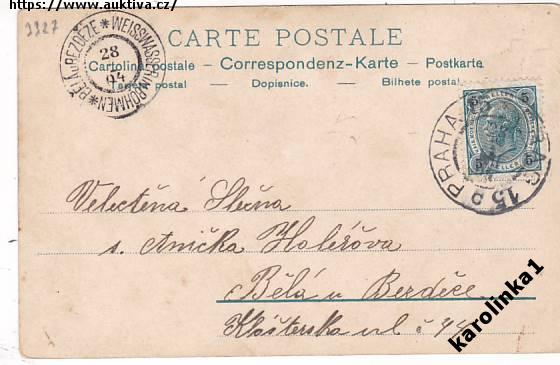 https://www.auktiva.cz/
3327
CARTE POSTALE
Cartolina postale - Correspondenz-Karte - Postkarte
Tarjeta postal — Dopisnice. — Bilhete postal
BĚLÁ u BEZDĚZE * WEISSWASSER in BÖHMEN *
28
04
PRAHA 15 PRAG
5 5
5 HELLER 5
Velectěná Slečna
s. Anička Holéřova
Bělá u Berdéče
Klášterska ul č 44
karolinka1